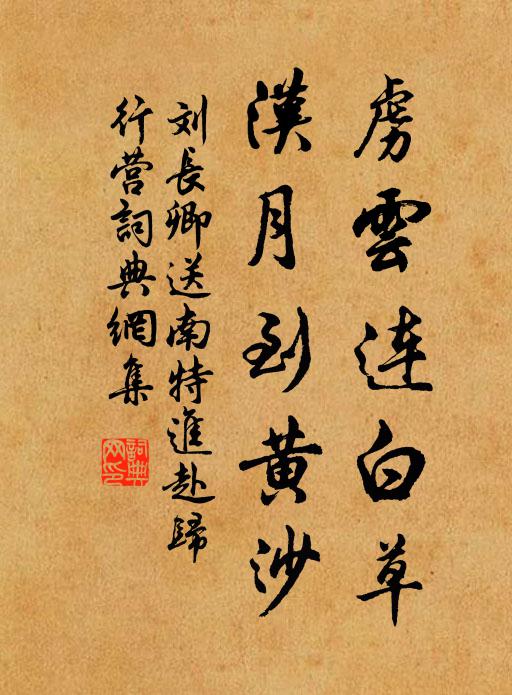 虜雲連白草
漢月到黄沙
刘長卿送南特進赴歸
行营詞典網集
詞典网印